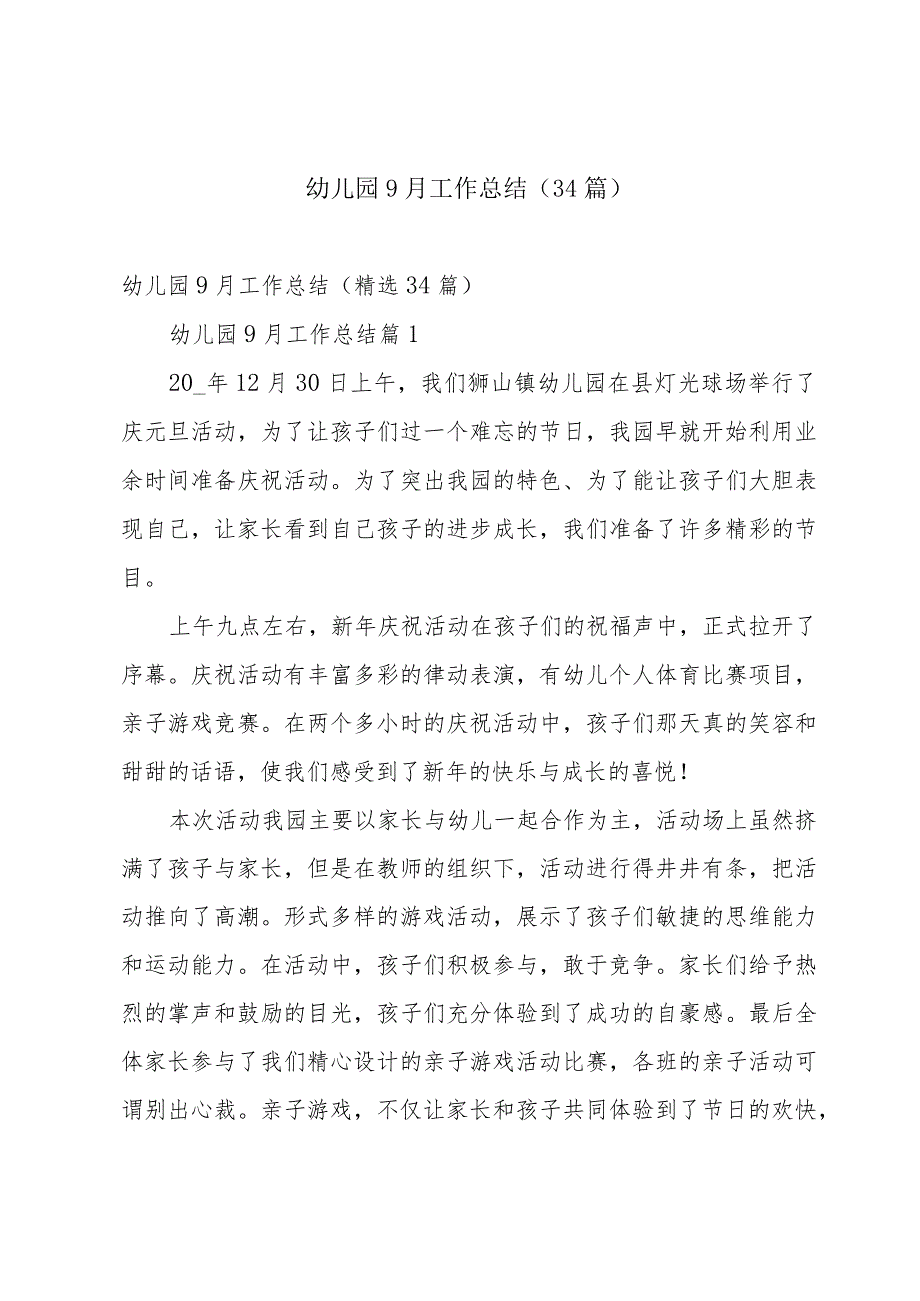 幼儿园9月工作总结（34篇）
幼儿园9月工作总结（精选34篇）
幼儿园9月工作总结篇1
20_年12月30日上午，我们狮山镇幼儿园在县灯光球场举行了
庆元旦活动，为了让孩子们过一个难忘的节日，我园早就开始利用业
余时间准备庆祝活动。为了突出我园的特色、为了能让孩子们大胆表
现自己，让家长看到自己孩子的进步成长，我们准备了许多精彩的节
目。
上午九点左右，新年庆祝活动在孩子们的祝福声中，正式拉开了
序幕。庆祝活动有丰富多彩的律动表演，有幼儿个人体育比赛项目，
亲子游戏竞赛。在两个多小时的庆祝活动中，孩子们那天真的笑容和
甜甜的话语，使我们感受到了新年的快乐与成长的喜悦！
本次活动我园主要以家长与幼儿一起合作为主，活动场上虽然挤
满了孩子与家长，但是在教师的组织下，活动进行得井井有条，把活
动推向了高潮。形式多样的游戏活动，展示了孩子们敏捷的思维能力
和运动能力。在活动中，孩子们积极参与，敢于竞争。家长们给予热
烈的掌声和鼓励的目光，孩子们充分体验到了成功的自豪感。最后全
体家长参与了我们精心设计的亲子游戏活动比赛，各班的亲子活动可
谓别出心裁。亲子游戏，不仅让家长和孩子共同体验到了节日的欢快，